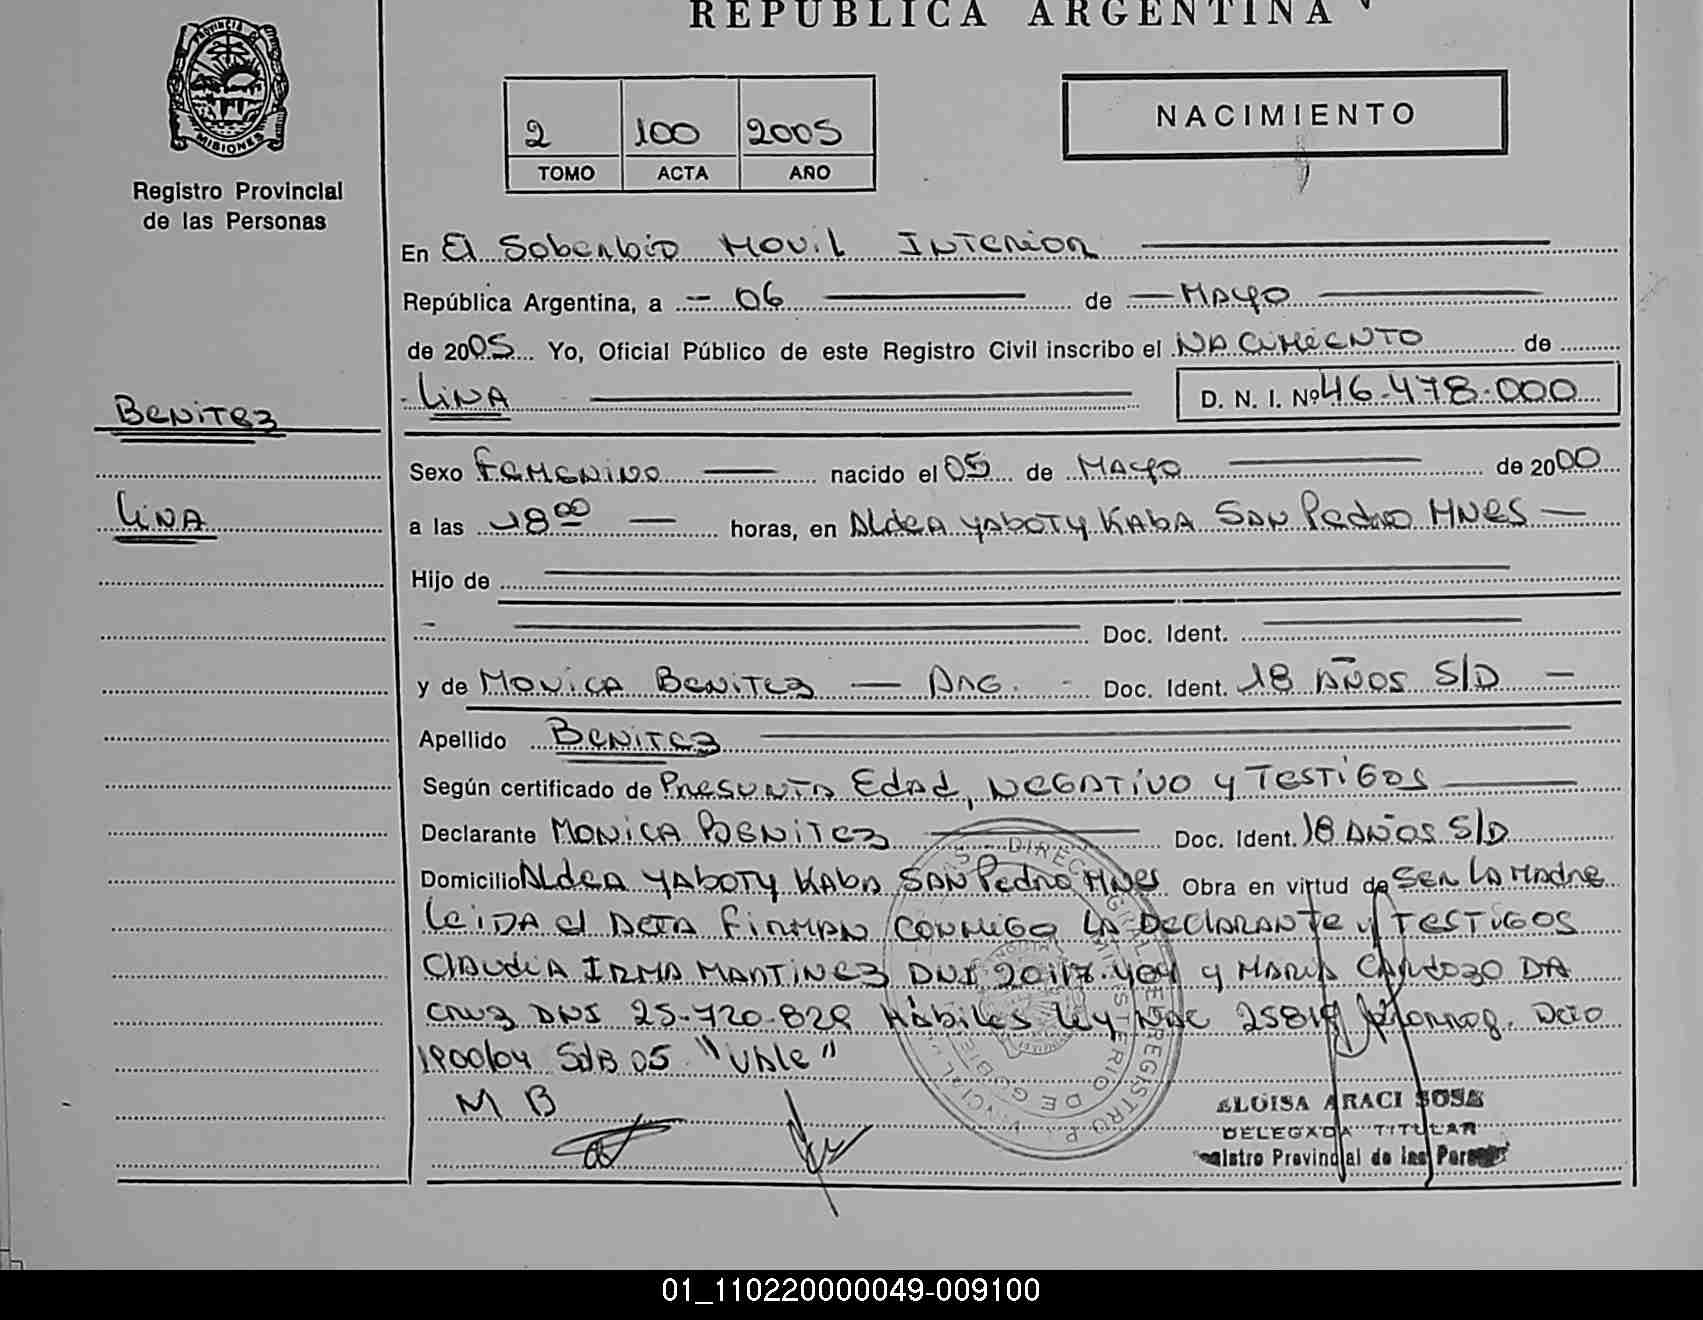 REPUBLICA ARGENTINA
PROVINCIA DE
MISIONES
Registro Provincial
de las Personas
2 100 2005
TOMO ACTA AÑO
NACIMIENTO
En El Soberbio Movil Interior
República Argentina, a 06 de Mayo
de 2005 Yo, Oficial Público de este Registro Civil inscribo el Nacimiento de
Lina D. N. I. Nº 46.478.000
Benitez
Lina
Sexo Femenino nacido el 05 de Mayo de 2000
a las 18 00 horas, en Aldea Yaboty Kaba San Pedro Mnes
Hijo de
Doc. Ident.
y de Monica Benitez — Arg. - Doc. Ident. 18 Años S/D
Apellido Benitez
Según certificado de Presunta Edad, Negativo y Testigos
Declarante Monica Benitez Doc. Ident. 18 Años S/D
Domicilio Aldea Yaboty Kaba San Pedro Mnes Obra en virtud de Ser La Madre
Leida el Acta Firman Conmigo La Declarante y Testigos
Claudia Irma Martinez DNI 20.117.404 y Maria Cardozo Da
Cruz DNI 25-720-829 Hábiles Ley Nac 25819 Dcto
1900/04 SdB 05 "Vale"
M B
ELOISA ARACI SOSA
DELEGADA TITULAR
Registro Provincial de las Personas
01_110220000049-009100